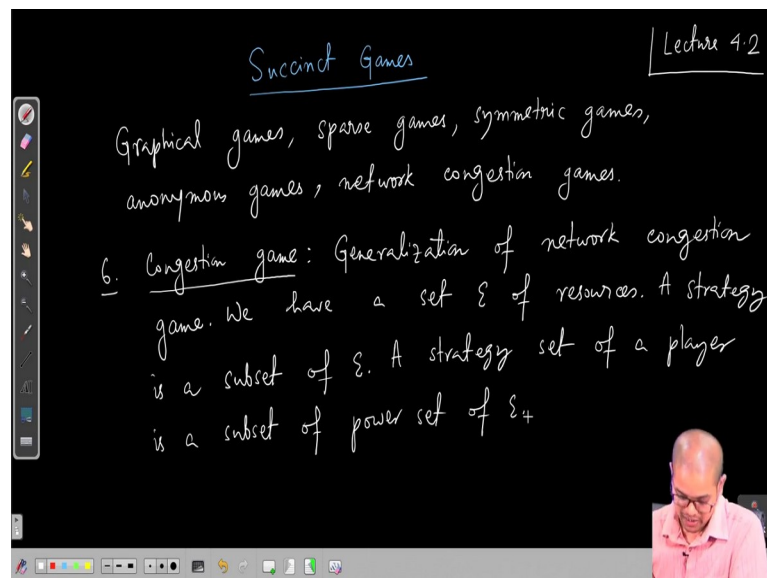 Lecture 4.2
Succinct Games
Graphical games, sparse games, symmetric games,
anonymous games, network congestion games.
6. Congestion game: Generalization of network congestion
game. We have a set Ɛ of resources. A strategy
is a subset of Ɛ. A strategy set of a player
is a subset of power set of Ɛ.